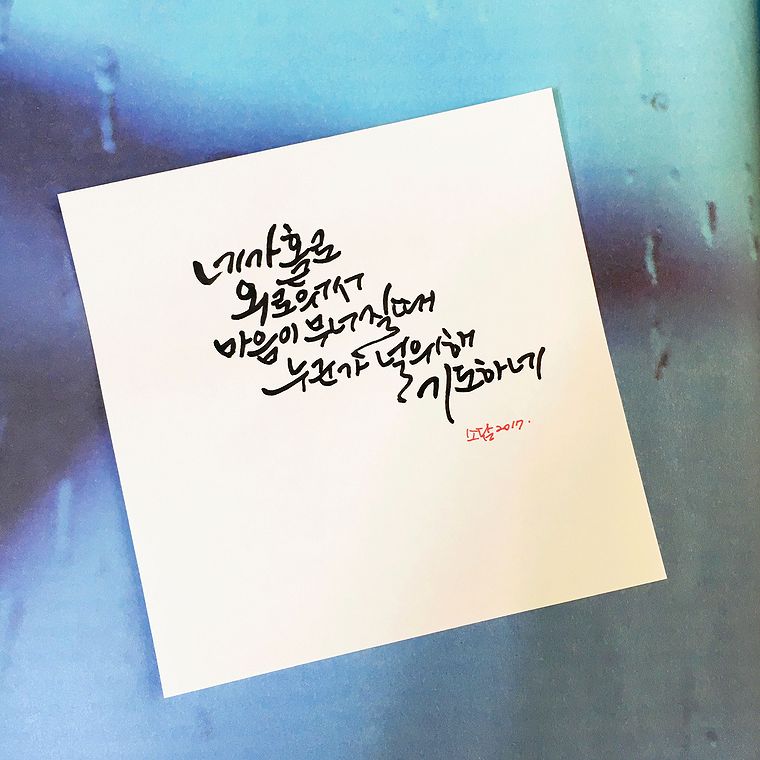 네가 홀로
외로워서
마음이 무너질때
누군가 널위해
기도하네
소담 2017.